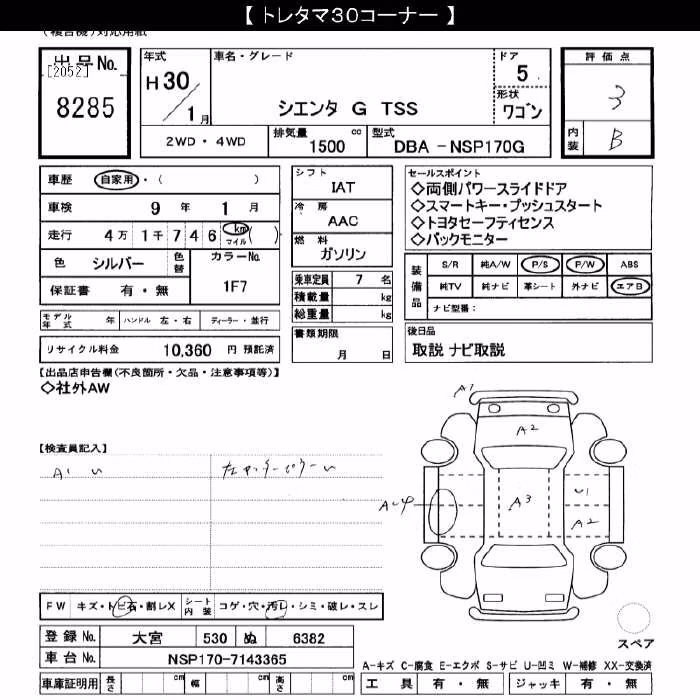 【 トレタマ30コーナー 】
(複合機)対応用紙
出品No.
[2052]
8285
年式
H 30 / 1 月
車名・グレード
シエンタ G TSS
ドア
5
形状
ワゴン
評価点
3
内装
B
2WD・4WD
排気量
1500 cc
型式
DBA -NSP170G
車歴 自家用・( )
車検 9 年 1 月
走行 4万 1千 7 4 6 km マイル ( )
色 シルバー 色替 カラーNo.
保証書 有・無 1F7
モデル年式 年 ハンドル 左・右 ディーラー・並行
リサイクル料金 10,360 円 預託済
シフト
IAT
冷房
AAC
燃料
ガソリン
乗車定員 7 名
積載量 kg
総重量 kg
書類期限
月 日
セールスポイント
◇両側パワースライドドア
◇スマートキー・プッシュスタート
◇トヨタセーフティセンス
◇バックモニター
装備品
S/R 純A/W P/S P/W ABS
純TV 純ナビ 革シート 外ナビ エアB
ナビ型番:
後日品
取説 ナビ取説
【出品店申告欄(不良箇所・欠品・注意事項等)】
◇社外AW
【検査員記入】
A'
A1
A2
A3
U1
A2
FW キズ・トビ石・割レX シート内装 コゲ・穴・汚レ・シミ・破レ・スレ
登録No. 大宮 530 ぬ 6382
車台No. NSP170-7143365
車庫証明用 長さ cm 幅 cm 高さ cm
スペア
A-キズ C-腐食 E-エクボ S-サビ U-凹ミ W-補修 XX-交換済
工具 有・無 ジャッキ 有・無